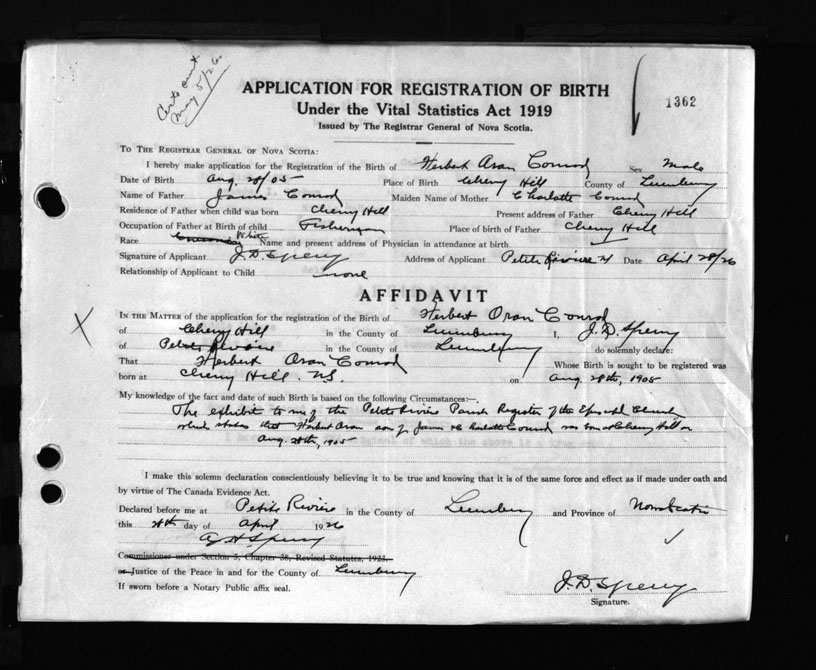 May 5/26
APPLICATION FOR REGISTRATION OF BIRTH
1362
Under the Vital Statistics Act 1919
Issued by The Registrar General of Nova Scotia.
TO THE REGISTRAR GENERAL OF NOVA SCOTIA:
I hereby make application for the Registration of the Birth of Herbert Oran Conrod Sex Male
Date of Birth Aug. 28/05 Place of Birth Cherry Hill County of Lunenburg
Name of Father James Conrod Maiden Name of Mother Charlotte Conrod
Residence of Father when child was born Cherry Hill Present address of Father Cherry Hill
Occupation of Father at Birth of child Fisherman Place of birth of Father Cherry Hill
Race White Name and present address of Physician in attendance at birth
Signature of Applicant J.D. Sperry Address of Applicant Petite Riviere Date April 28/26
Relationship of Applicant to Child none
AFFIDAVIT
IN THE MATTER of the application for the registration of the Birth of Herbert Oran Conrod
of Cherry Hill in the County of Lunenburg I, J.D. Sperry
of Petite Riviere in the County of Lunenburg do solemnly declare:
That Herbert Oran Conrod Whose Birth is sought to be registered was
born at Cherry Hill. N.S. on Aug. 28th, 1905
My knowledge of the fact and date of such Birth is based on the following Circumstances:—
The exhibit to me of the Petite Riviere Parish Register of the Episcopal Church
which states that Herbert Oran son of James & Charlotte Conrod was born at Cherry Hill on
Aug. 28th, 1905
I make this solemn declaration conscientiously believing it to be true and knowing that it is of the same force and effect as if made under oath and
by virtue of The Canada Evidence Act.
Declared before me at Petite Riviere in the County of Lunenburg and Province of Nova Scotia
this 28th day of April 1926
Sperry
Commissioner under Section 5, Chapter 38, Revised Statutes, 1923.
or Justice of the Peace in and for the County of Lunenburg
If sworn before a Notary Public affix seal.
J.D. Sperry
Signature.